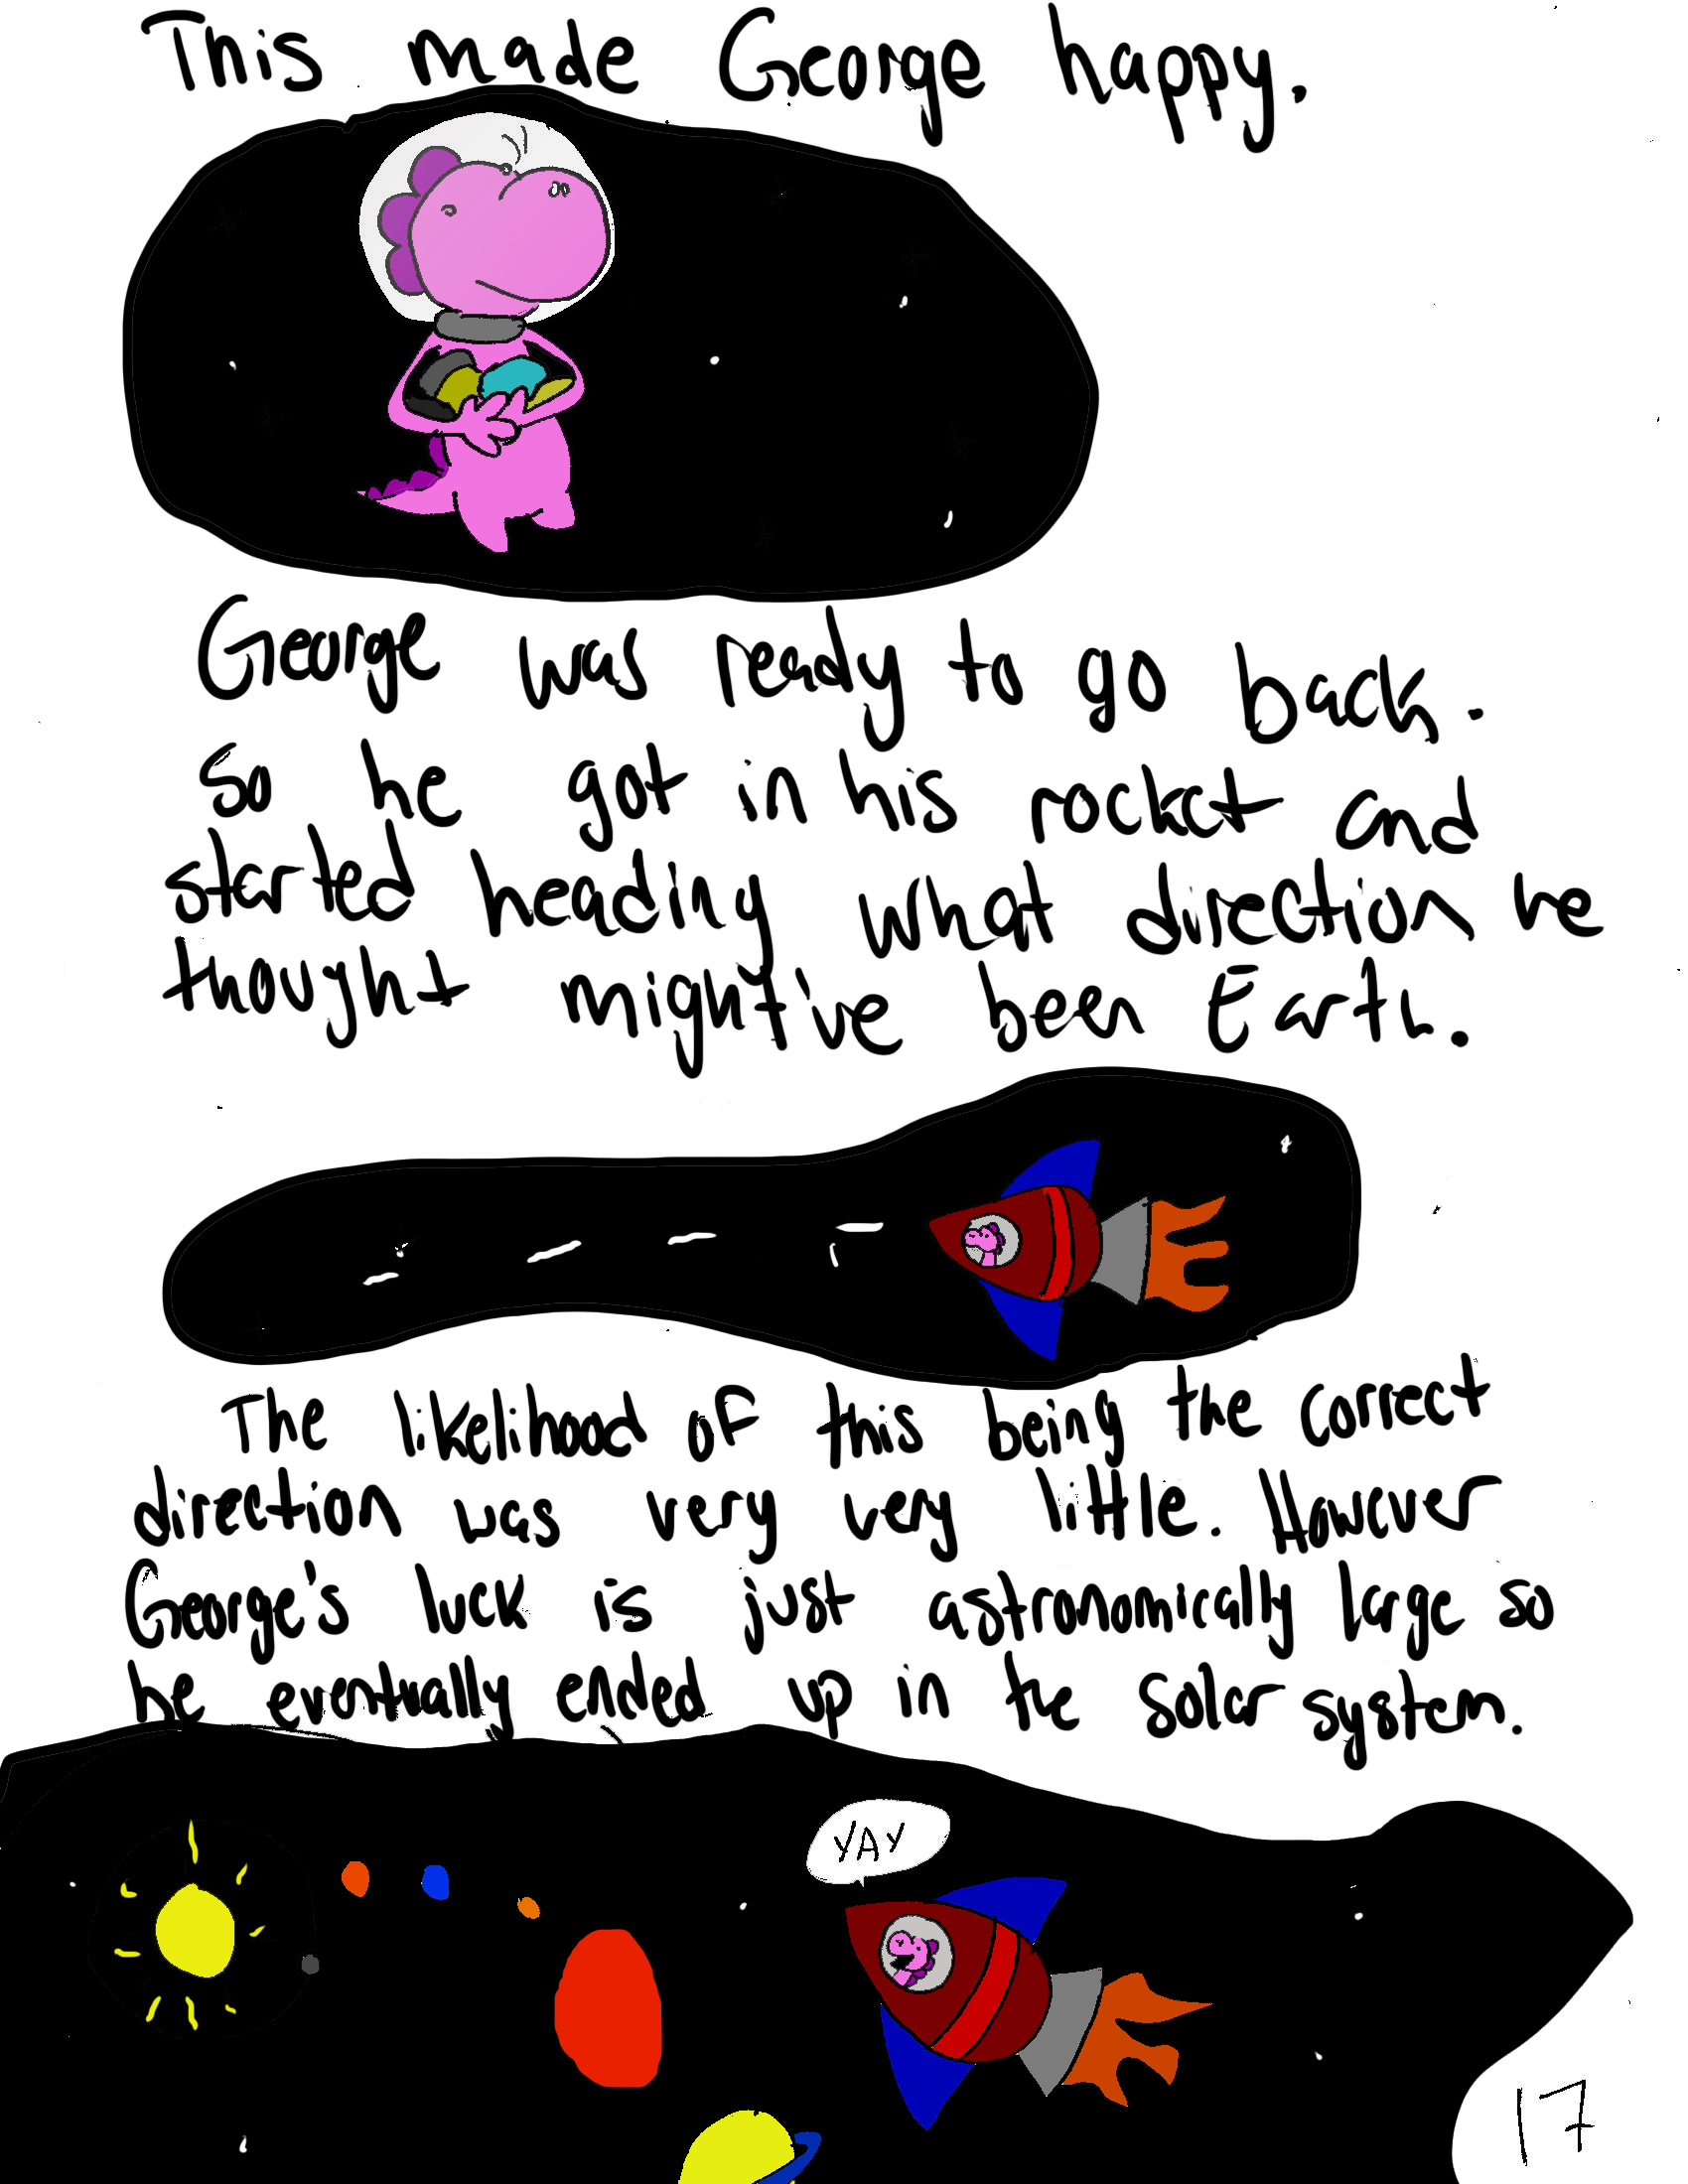 This made George happy.
George was ready to go back.
So he got in his rocket and
started heading what direction he
thought might've been Earth.
The likelihood of this being the correct
direction was very very little. However
George's luck is just astronomically large so
he eventually ended up in the solar system.
YAY
17